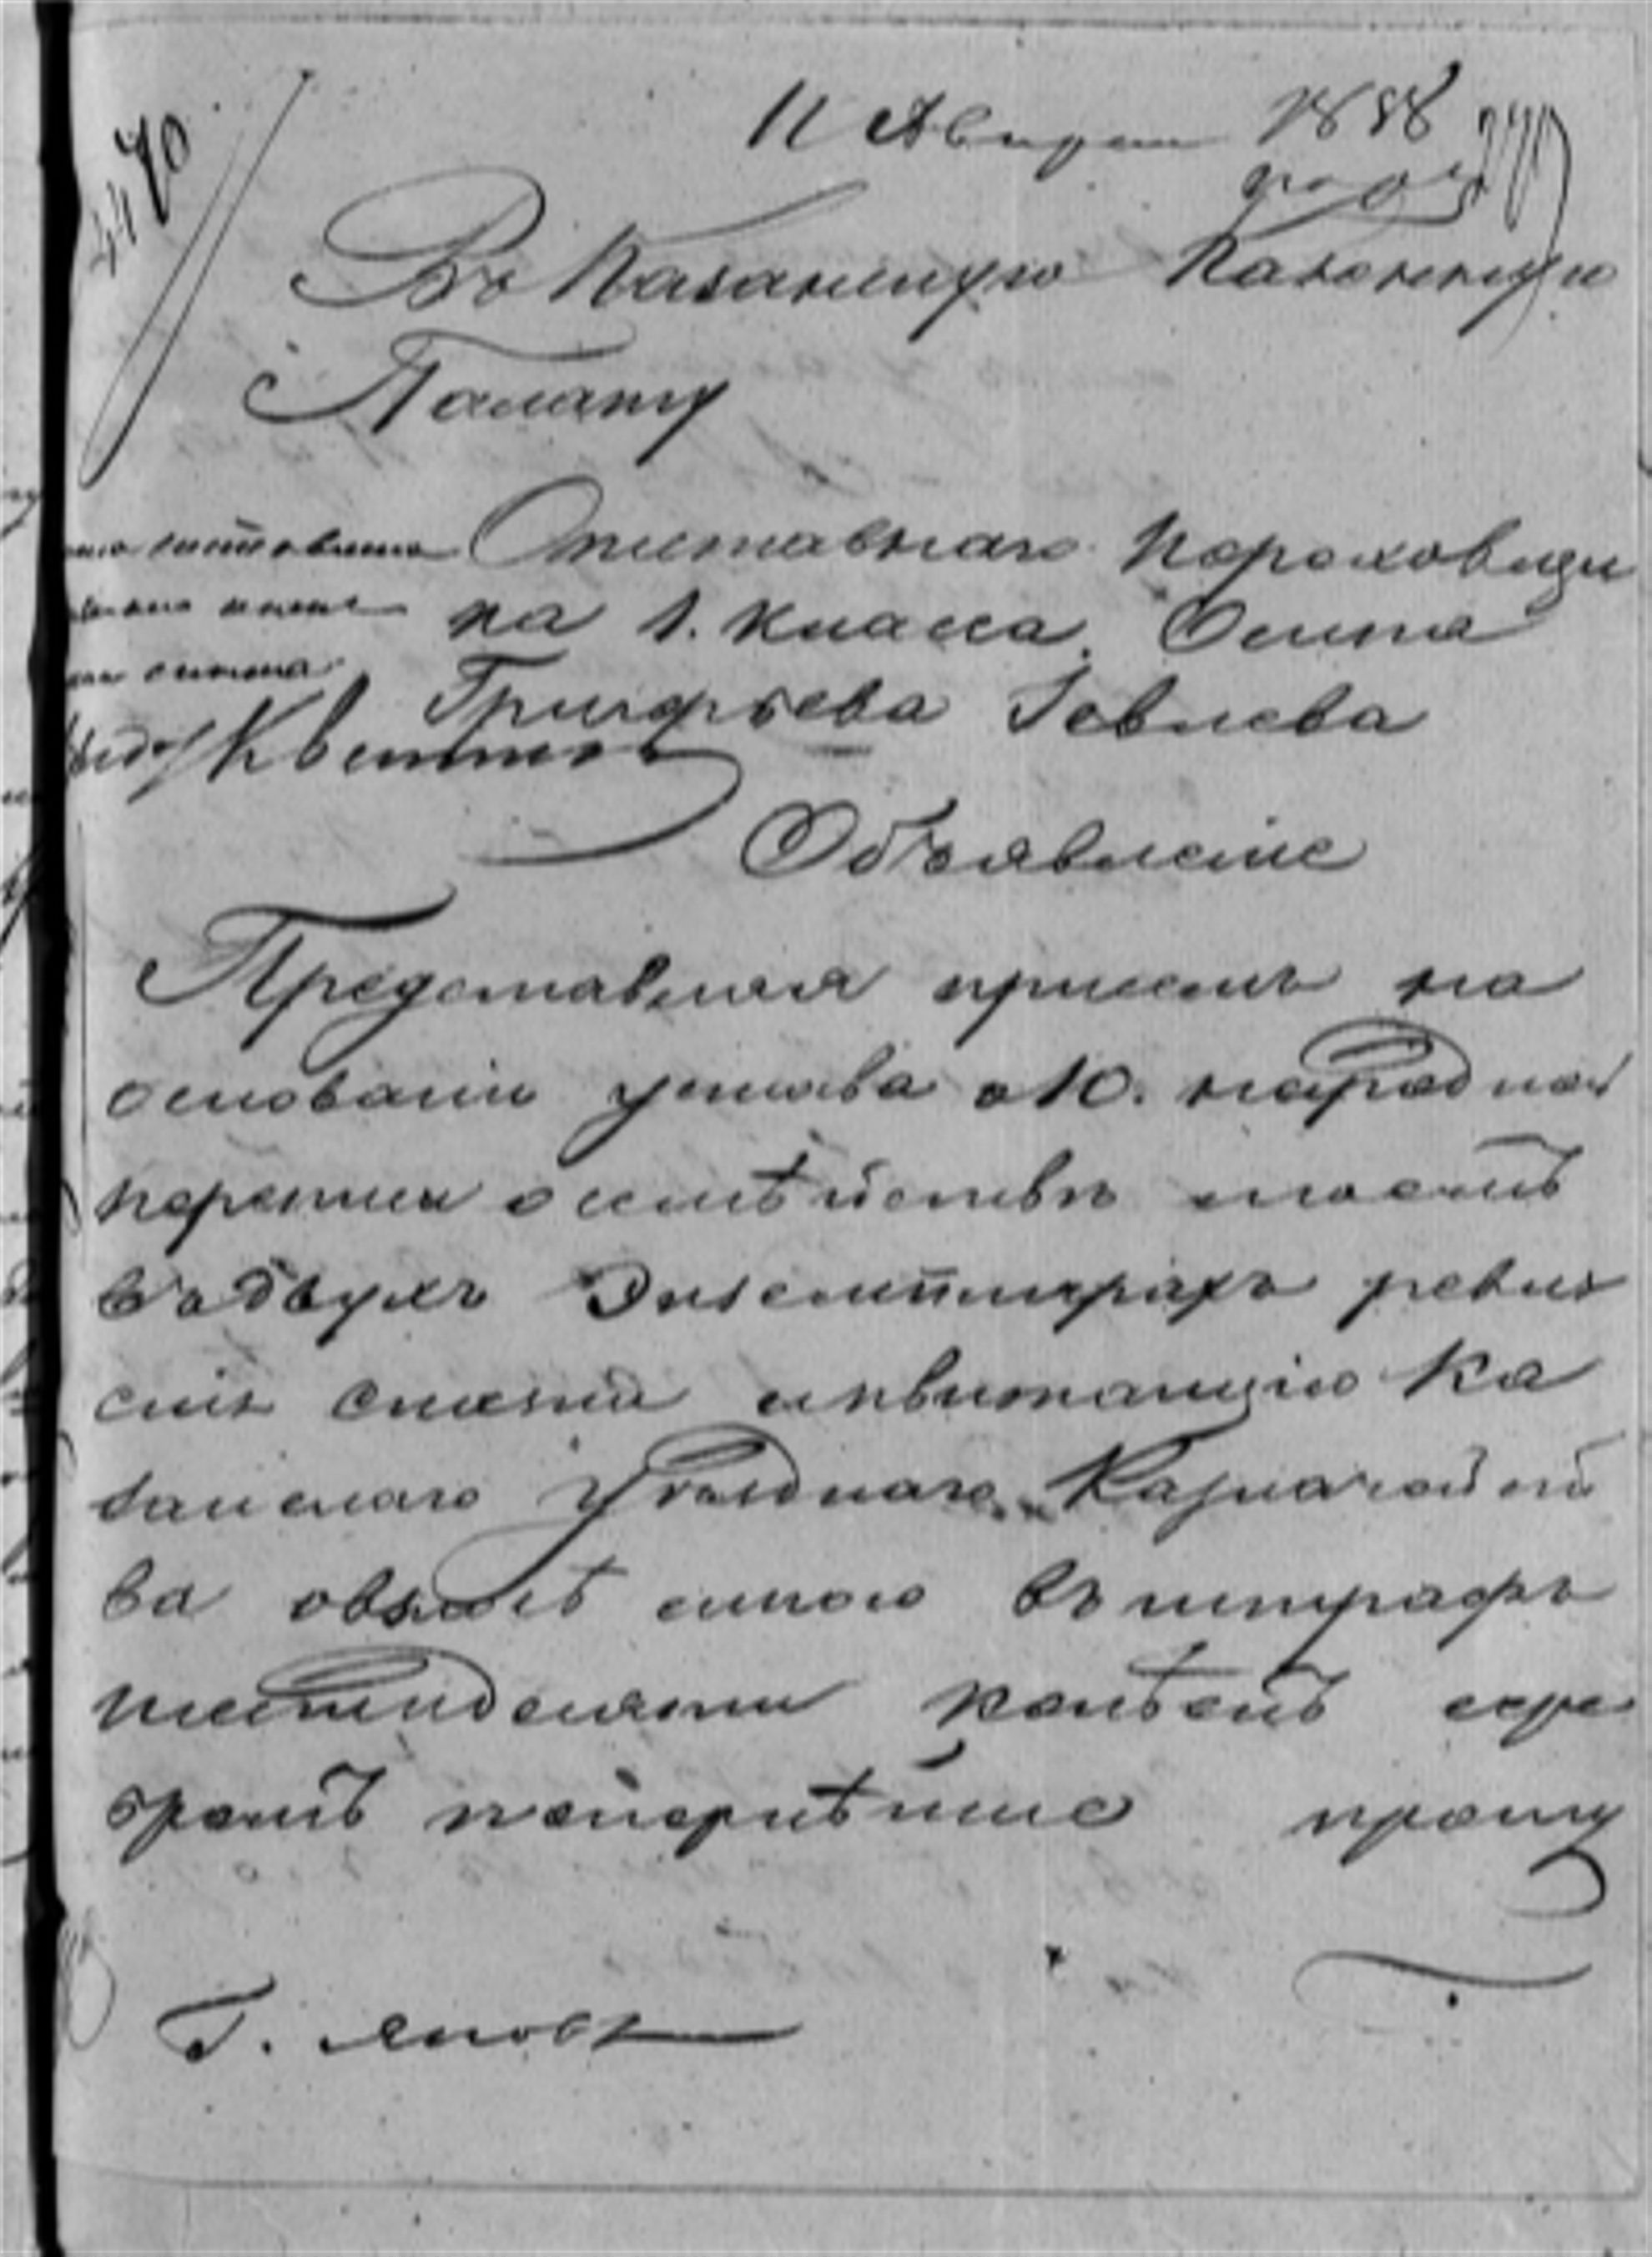 4470
11 Августа 1858
году
Въ Казанскую Казенную
Палату
Отставнаго Пороховщи
ка 1. класса Осипа
Григорьева Іевлева
Объявленіе
Представляя присемъ на
основаніи устава о 10. народной
переписи о семѣйствѣ моемъ
въ двухъ Экземплярахъ ревиз
скія сказки и квитанцію Ка
занскаго Уѣзднаго Казначейст
ва овзносѣ мною въ штрафъ
шестидесяти копѣекъ сере
бромъ покорнѣйше прошу